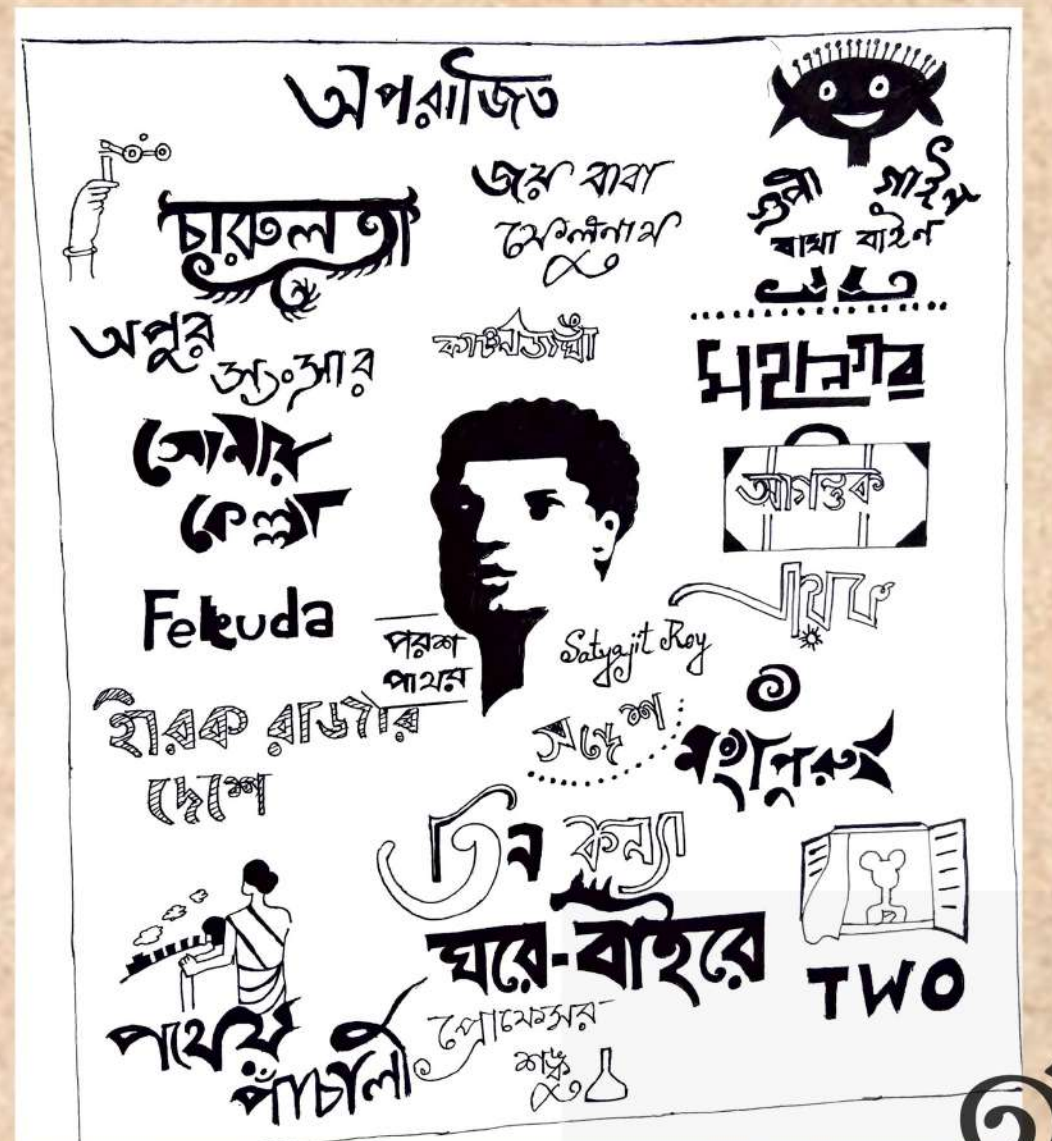 অপরাজিত
জয় বাবা
ফেলুনাথ
গুপী গাইন
বাঘা বাইন
চারুলতা
অপুর
সংসার
কাঞ্চনজঙ্ঘা
মহানগর
সোনার
কেল্লা
আগন্তুক
Feluda
নায়ক
পরশ
পাথর
Satyajit Ray
হীরক রাজার
দেশে
সন্দেশ
মহাপুরুষ
তিন কন্যা
ঘরে-বাইরে
TWO
পথের
পাঁচালী
প্রোফেসর
শঙ্কু